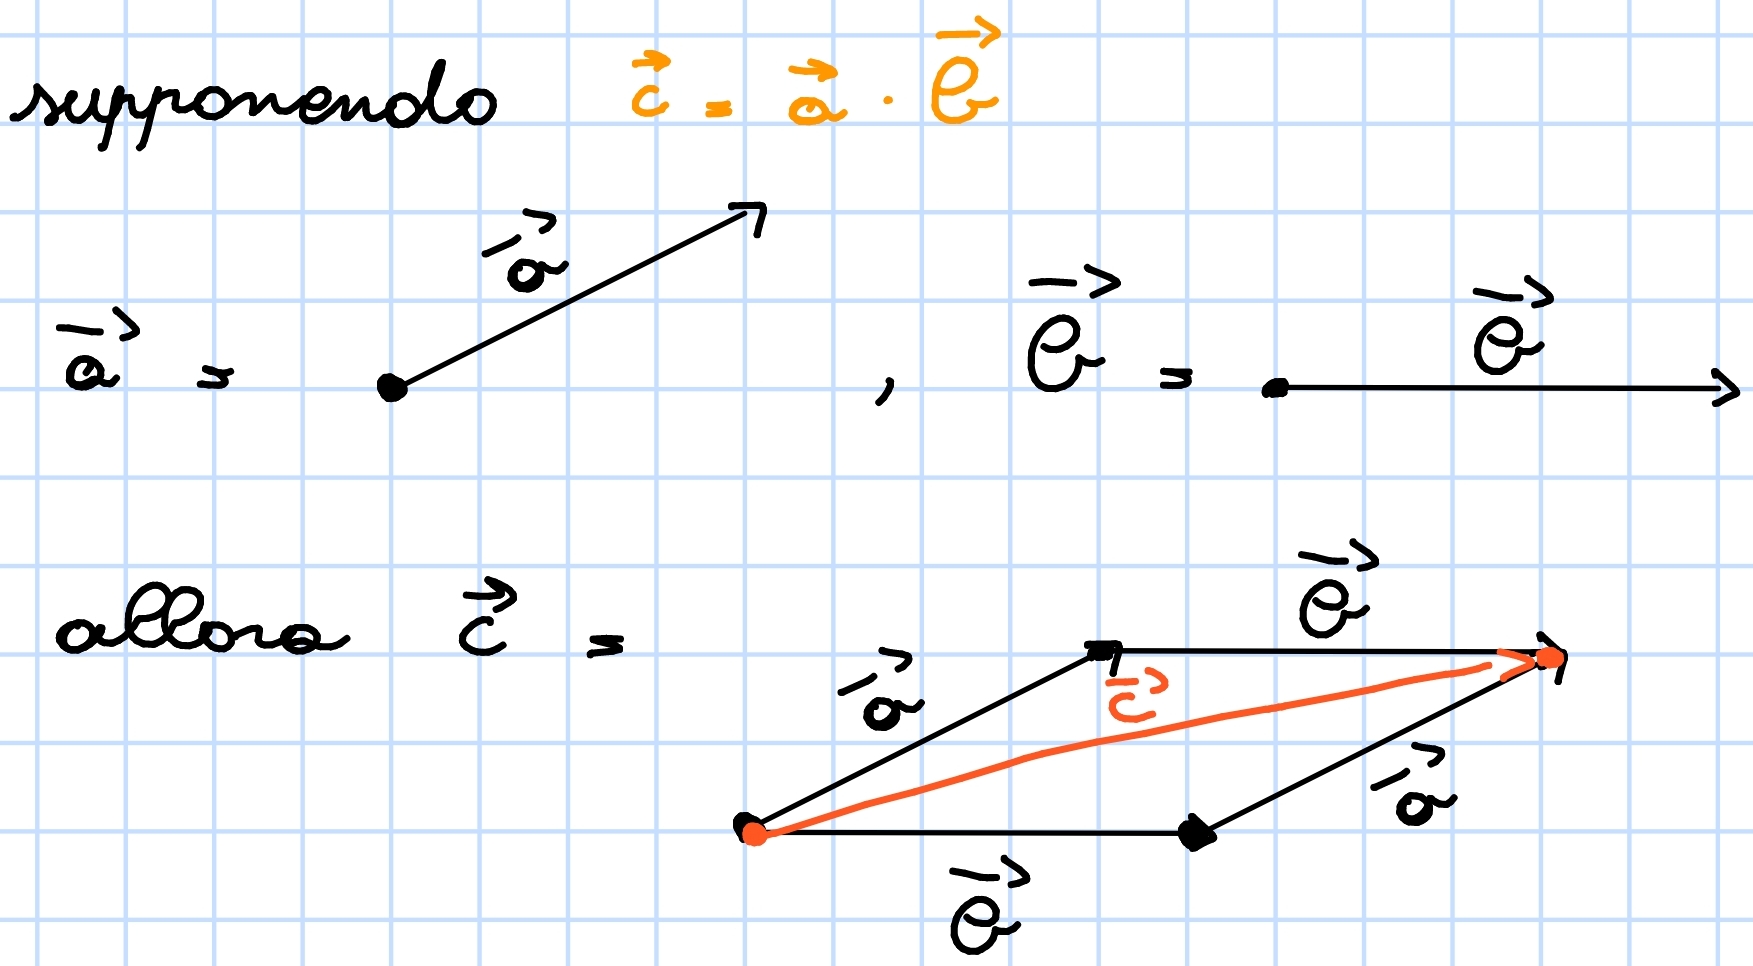 supponendo c⃗ = a⃗ · b⃗
a⃗
a⃗ = , b⃗ = b⃗
allora c⃗ = b⃗
a⃗ c⃗
a⃗
b⃗